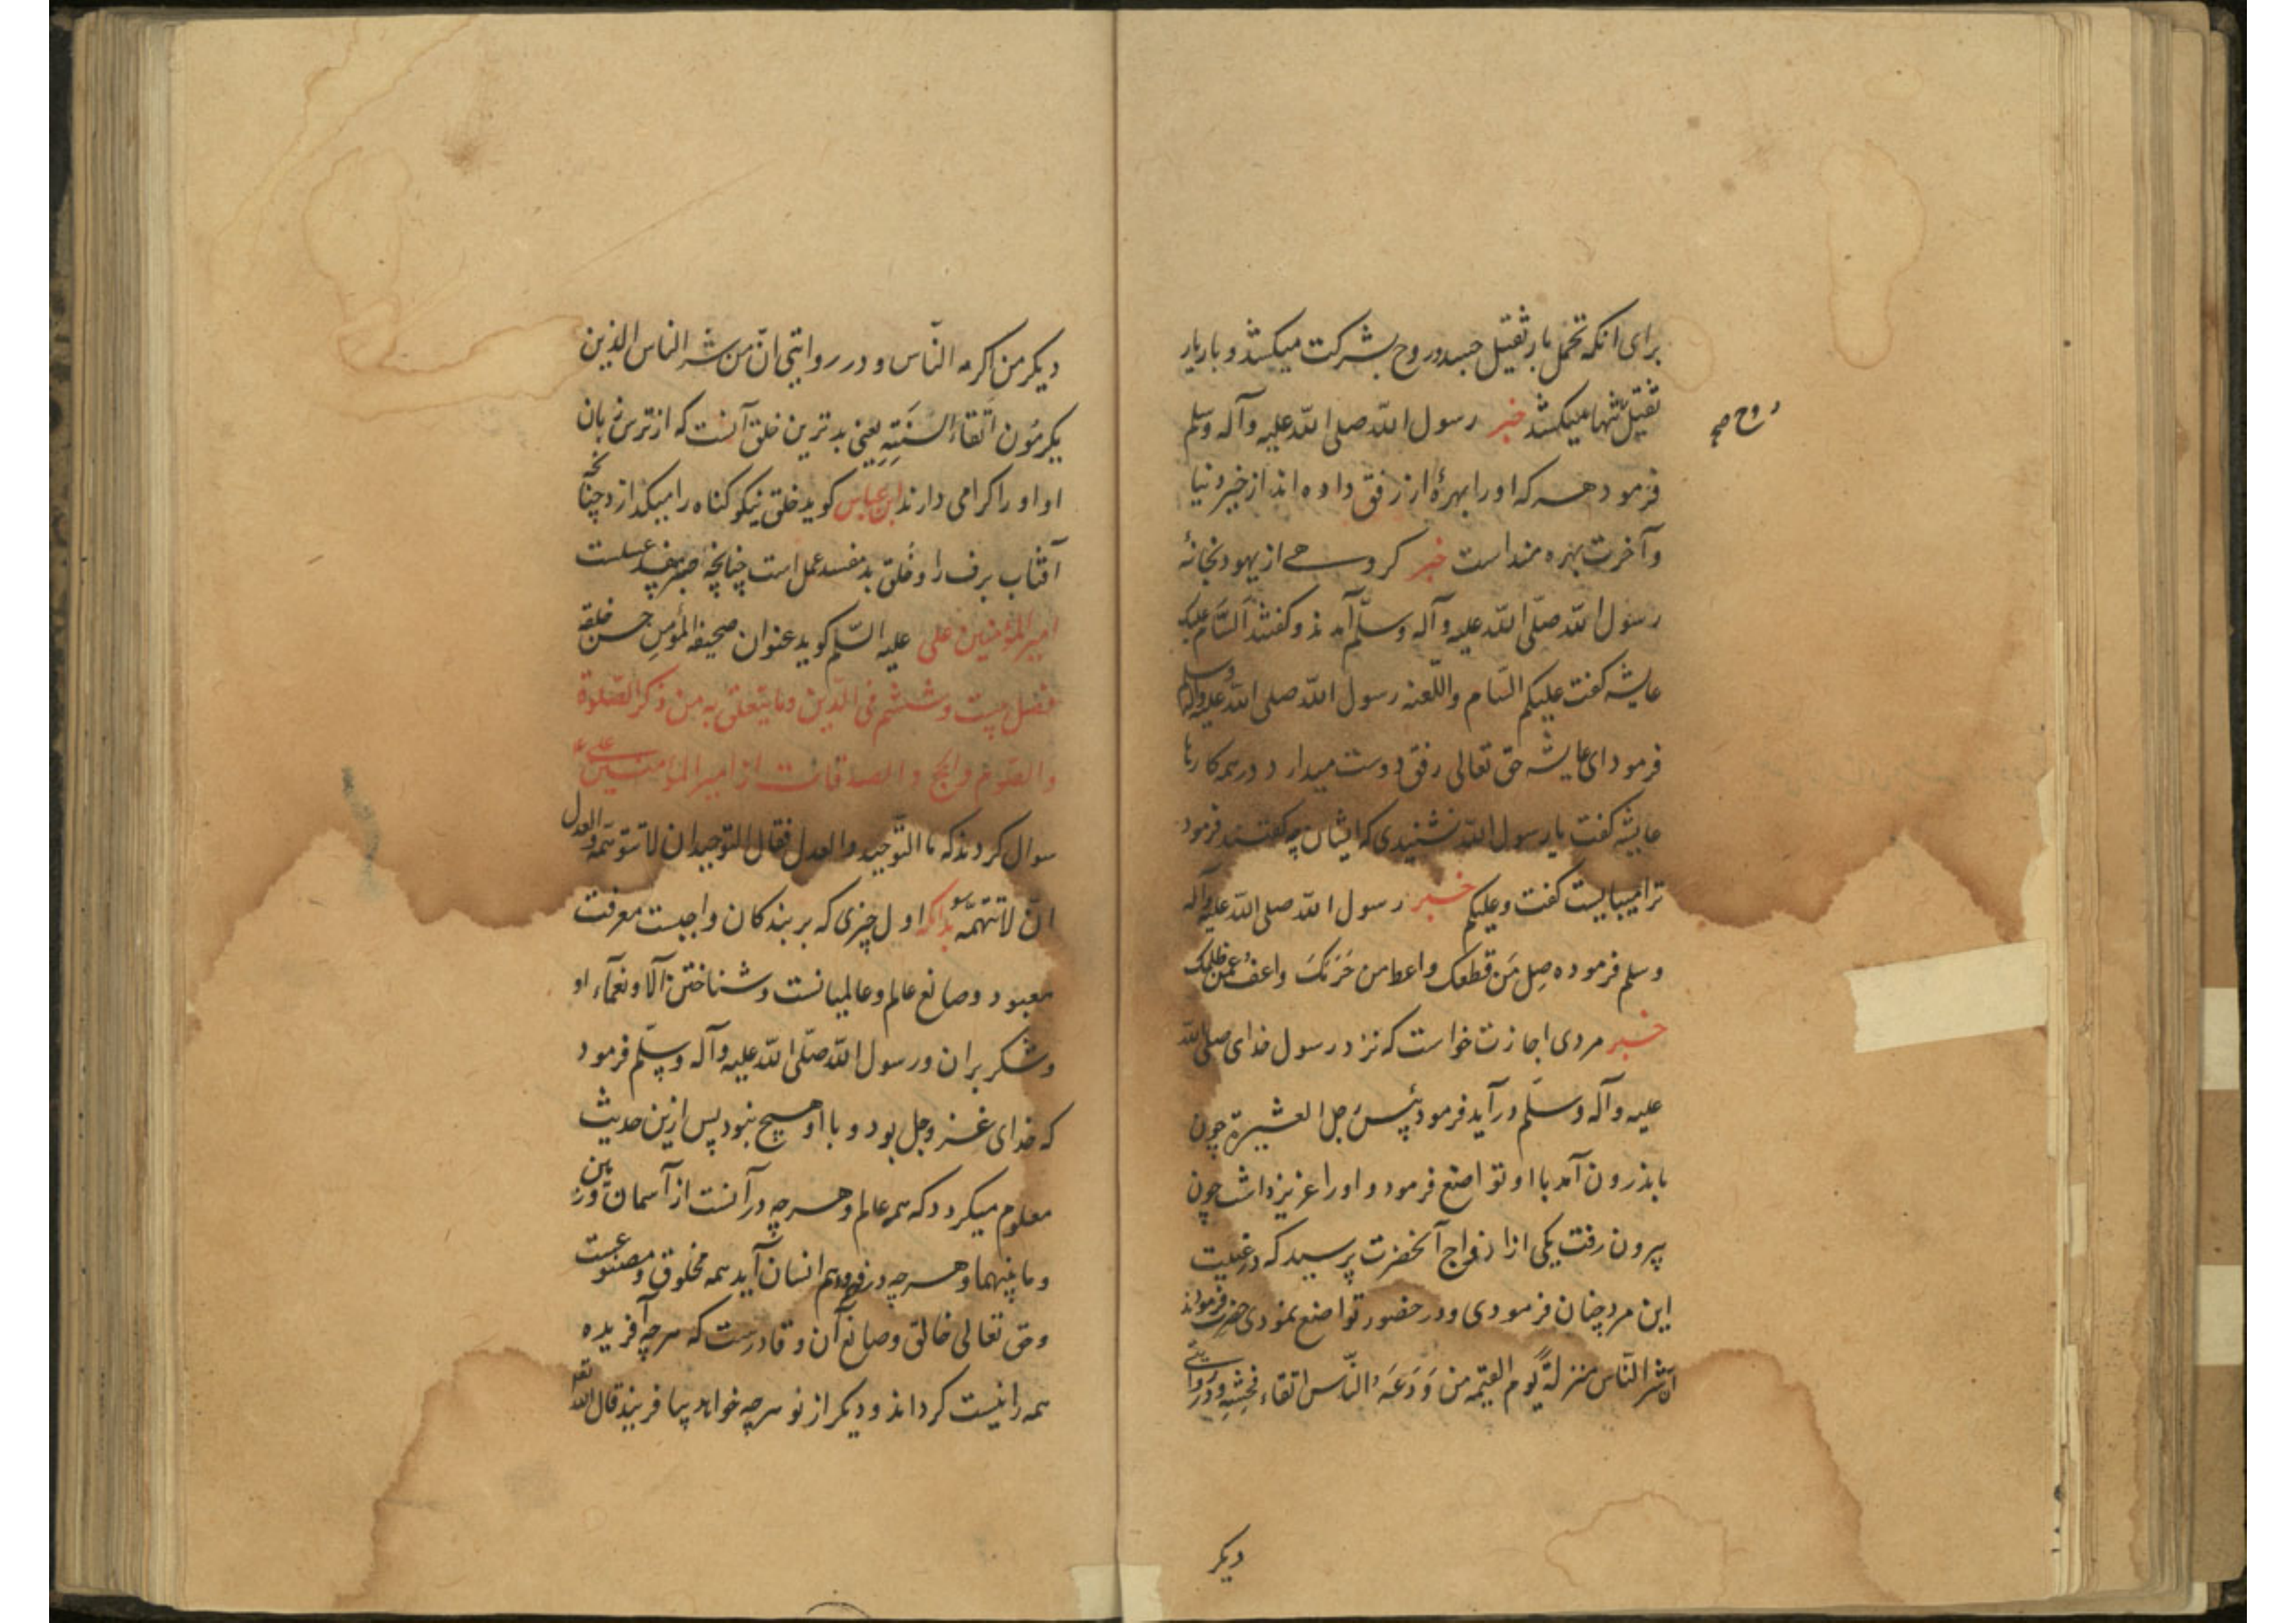 برای انکه تحمل بار ثقیل جسد و روح بشرکت میکشد و باریار
ثقیل تنها میکشد خبر رسول الله صلی الله علیه وآله وسلم
روح صح
فرمود هر که او را بهرهٔ از رفق داده اند از خیر دنیا
وآخرت بهره مند است خبر کروهی از یهود بخانهٔ
رسول الله صلّی الله علیه وآله وسلّم آمدند و کفتند السّام علیک
عایشه کفت علیکم السّام واللّعنه رسول الله صلی الله علیه وآله وسلم
فرمود ای عایشه حق تعالی رفق دوست میدارد در همه کارها
عایشه کفت یا رسول الله نشنیدی که ایشان چه کفتند فرمود
ترا میبایست کفت وعلیکم خبر رسول الله صلی الله علیه وآله
وسلم فرموده صِل مَن قطعک واعط من حَرَمَکَ واعفُ عمّن ظلمک
خبر مردی اجازت خواست که نزد رسول خدای صلی الله
علیه وآله وسلّم درآید فرمود بئس رجل العشیرة چون
باندرون آمد با او تواضع فرمود و او را عزیز داشت چون
بیرون رفت یکی از ازواج آنحضرت پرسید که در غیبت
این مرد چنان فرمودی و در حضور تواضع نمودی حضرت فرمودند
انّ شرّ النّاس منزلةً یوم القیمه من وَدَعَهُ النّاس اتقاء فحشِهِ و در روایتی
دیکر
دیکر من اکرمه النّاس و در روایتی انّ من شر النّاس الذین
یکرمُون اتقاء السنَتِهِم یعنی بدترین خلق آنست که از ترس زبان
او او را کرامی دارند ابن عباس کوید خلق نیکو کناه را میکدازد چنانچه
آفتاب برف را و خُلق بد مفسد عمل است چنانچه صبر مفسد عسلست
امیر المؤمنین علی علیه السّلم کوید عنوان صحیفة المؤمن حسن خلقه
فصل بیست و ششم فی الدّین وما یتعلق به من ذکر الصّلوة
والصّوم والحج والصدقات از امیر المؤمنین علی ع
سوال کردند که ما التّوحید والعدل فقال التّوحید ان لا تتوهّمه والعدل
ان لا تتّهمه بدانکه اول چیزی که بر بندکان واجبست معرفت
معبود و صانع عالم و عالمیانست و شناختن آلا و نعمآء او
و شکر بر ان و رسول الله صلّی الله علیه وآله وسلّم فرمود
که خدای عز وجل بود و با او هیچ نبود پس ازین حدیث
معلوم میکردد که همه عالم و هر چه در آنست از آسمان و زمین
و ما بینهما و هر چه در فهم و وهم انسان آید همه مخلوق و مصنوعست
و حق تعالی خالق و صانع آن و قادرست که هر چه آفریده
همه را نیست کرداند و دیکر از نو هر چه خواهد بیافریند قال الله تعه